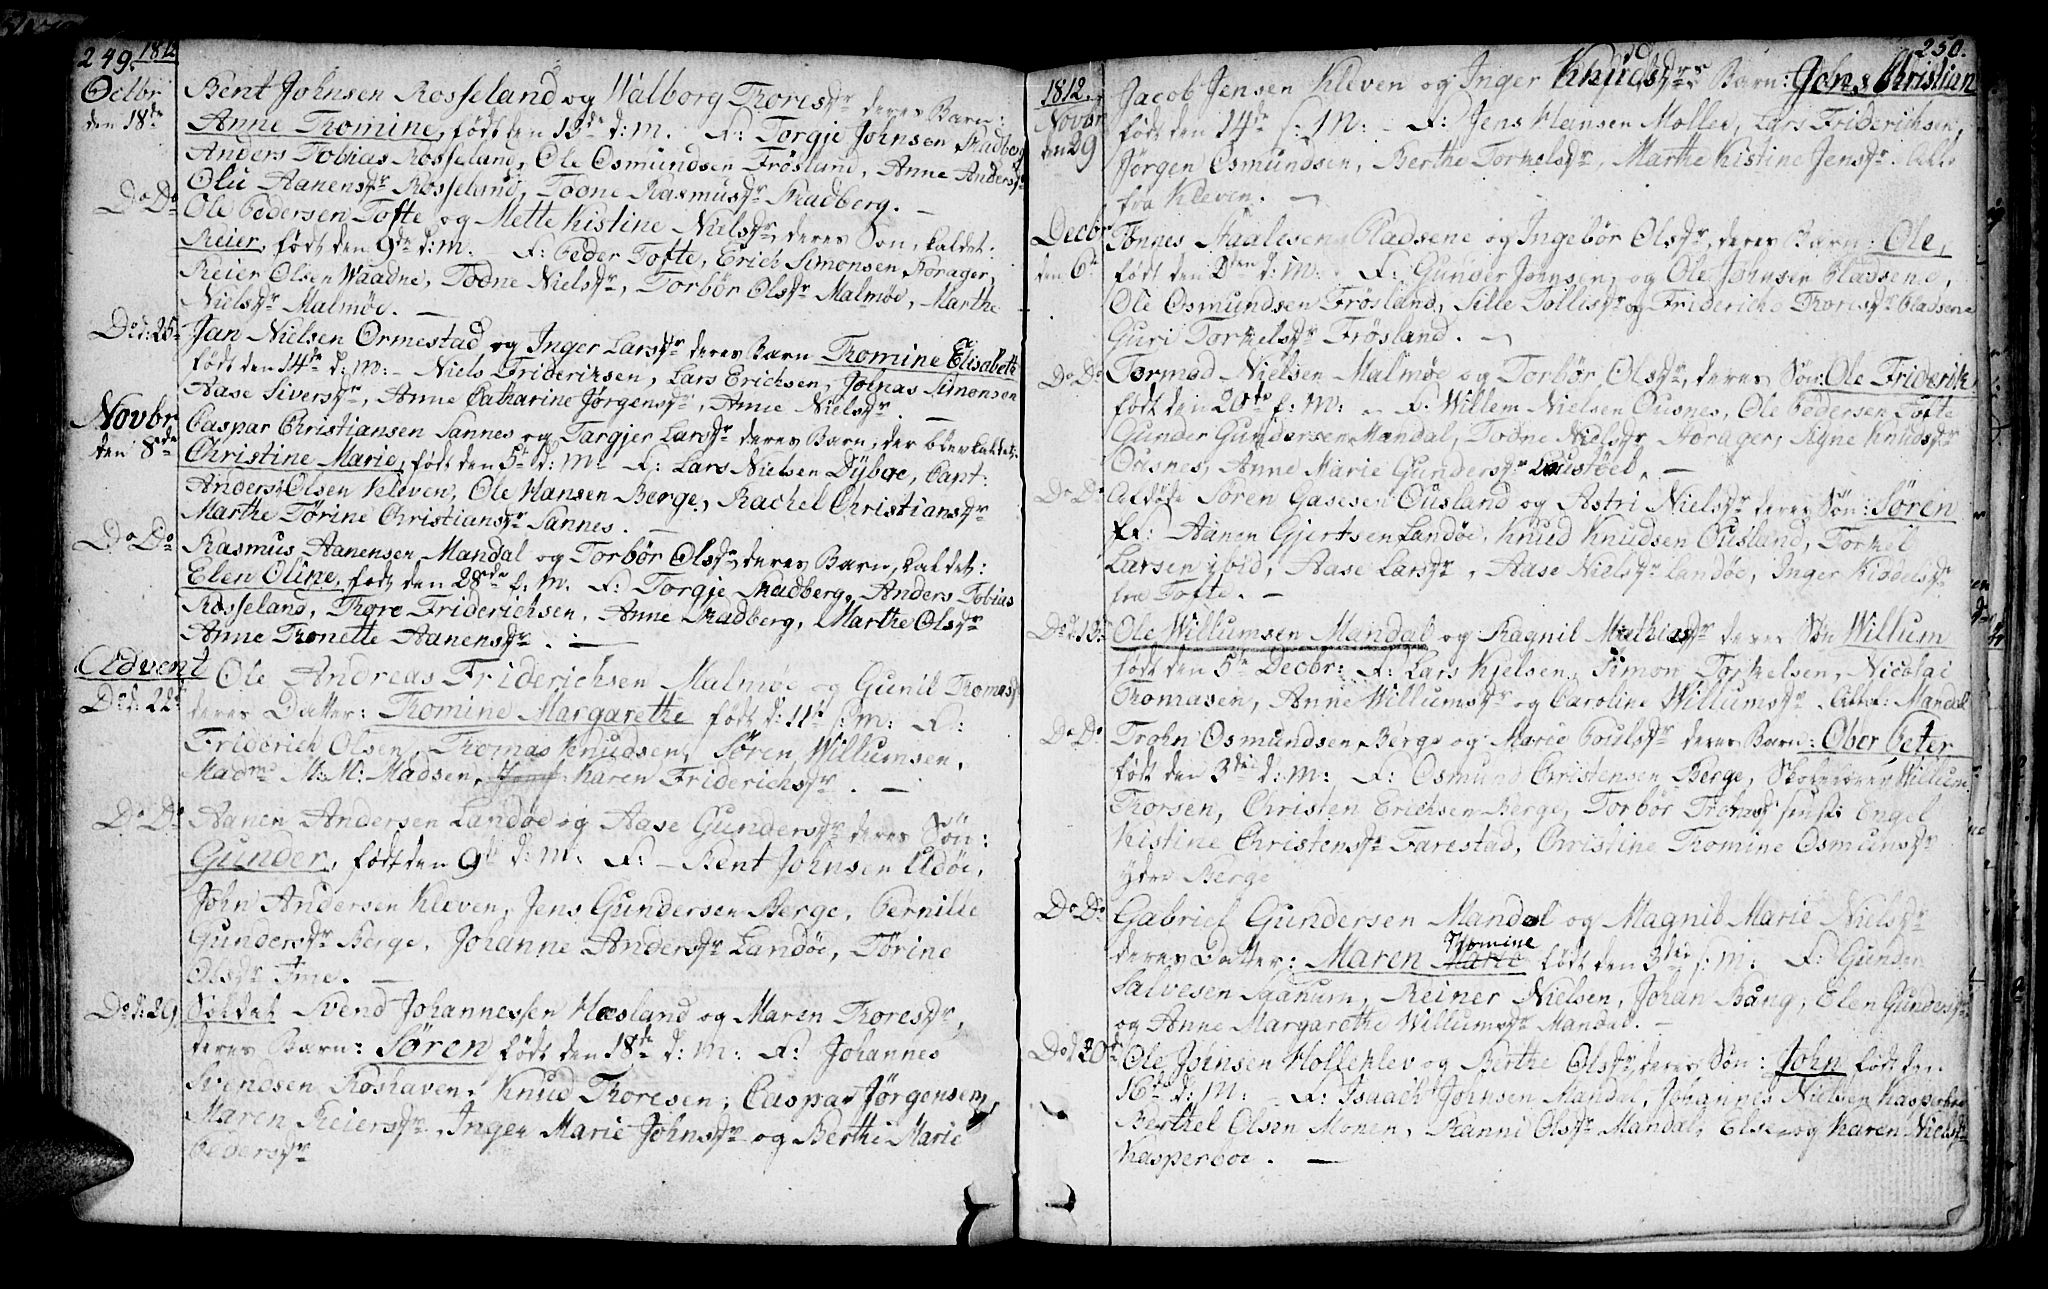 249. 1812
Octbr Bent Johnsen Rosseland og Walborg Thoresdr deres Barn:
den 18de Anne Thomine, født den 13de d: m. F: Torgje Johnsen Skadberg
Anders Tobias Rosseland, Ole Osmundsen Frösland, Anne Andersdr
Olu Aanensdr Rosseland, Todne Rasmusdr Skadberg. —
Do Do Ole Pedersen Tofte og Mette Kistine Nielsdr, deres Søn, kaldet:
Reier, født den 9de d: m. F: Peder Tofte, Erich Simonsen
Reier Olsen Waadne, Todne Nielsdr, Torbör Olsdr Malmöe, Marthe
Nielsdr Malmöe. —
Do d: 25 Jan Nielsen Ormestad og Inger Larsdr deres Barn Thomine Elisabeth
født den 14de d: m: — Niels Friderichsen, Lars Erichsen, Johnas Simonsen
Aase Siversdr, Anne Catharine Jörgensdr, Anne Nielsdr. —
Novbr Caspar Christiansen Sannes og Targjer Larsdr deres Barn, der blev kaldet
den 8de Christine Marie, født den 5te d: m: F: Lars Nielsen Dyboe, Cant:
Anders Olsen Kleven, Ole Hansen Berge, Rachel Christiansdr
Marthe Törine Christiansdr Sannes. —
Do Do Rasmus Aanensen Mandal og Torbör Olsdr, deres Barn, kaldet:
Elen Oline, født den 28de f: M. F: Torgje Skadberg, Anders Tobias
Rosseland, Thore Friderichsen, Anne Skadberg, Marthe Olsdr
Anne Tronette Aanensdr. —
Advent Ole Andreas Friderichsen Malmöe og Gunil Thomasdr
Do d: 22 deres Datter: Thomine Margarethe født d: 11te f: m: F:
Friderich Olsen, Thomas Knudsen, Sören Willumsen,
Madme M: M: Madsen, Karen Friderichsdr. —
Do Do Aanen Andersen Landöe og Aase Gundersdr deres Søn:
Gunder, født den 9de d: m: F: — Bent Johnsen Udöe,
John Andersen Kleven, Jens Gundersen Berge, Pernille
Gundersdr Berge, Johanne Andersdr Landöe, Törine
Olsdr Ime. —
Do d: 29 Soldat Svend Johannessen Hæsland og Maren Thoresdr,
deres Barn: Sören født den 18de d: m: F: Johannes
Svendsen Roshaven, Knud Thoresen, Caspar Jörgensen,
Maren Reiersdr, Inger Marie Johnsdr og Berthe Marie
Pedersdr
250.
1812. Jacob Jensen Kleven og Inger Knudsdr Barn: Jens Christian
Novbr født den 14de f: M: — F: Jens Hansen Moller, Lars Friderichsen,
den 29 Jörgen Osmundsen, Berthe Torkelsdr, Marthe Kistine Jensdr. Alle
fra Kleven. —
Decbr Tönnes Staalesen Pladsene og Ingebör Olsdr, deres Barn: Ole,
den 6te født den 2den d: M: F: Gunder Johnsen, og Ole Johnsen Pladsene,
Ole Osmundsen Frösland, Sille Tollisdr og Frideriche Thoresdr Pladsene
Guri Torkelsdr Frösland. —
Do Do Tormod Nielsen Malmöe og Torbör Olsdr, deres Søn: Ole Friderik
født den 20de f: M: — F: Willem Nielsen Ousnes, Ole Pedersen Tofte
Gunder Gundersen Mandal, Todne Nielsdr, Signe Knudsdr
Ousnes, Anne Marie Gundersdr —
Do Do Afdøde Sören Gasesen Ousland og Astri Nielsdr deres Søn: Sören
F: Aanen Gjertsen Landöe, Knud Knudsen Ousland, Torkel
Larsen ibid, Aase Larsdr, Aase Nielsdr Landöe, Inger Kiddelsdr
fra Tofte. —
Do d: 13de Ole Willumsen Mandal og Ragnil Mathiasdr deres Søn Willum
født den 5te Decbr: F: Lars Kjelsen, Simon Torkelsen, Nicolai
Thomasen, Anne Willumsdr og Caroline Willumsdr. Alle fra: Mandal
Do Do Trohn Osmundsen Berge og Marie Poulsdr deres Barn: Ober Peter
født den 3die d: M: F: Osmund Christensen Berge, Skoleholder Willum
Thorsen, Christen Erichsen Berge, Torbör Engel
Kistine Christensdr Farestad, Christine Thomine Osmunsdr
ydre Berge
Do Do Gabriel Gundersen Mandal og Magnil Marie Nielsdr
deres Datter: Maren Marie Thomine født den 3die f: m: F: Gunder
Salvesen Saanum, Reiner Nielsen, Johan Bång, Elen Gundersdr
og Anne Margarethe Willumsdr Mandal. —
Do d: 20de Ole Johnsen Holleklev og Berthe Olsdr, deres Søn: John født den
16de d: M: — F: Isaach Johnsen Mandal, Johannes Nielsen Kasperboe
Berthel Olsen Monen, Ranni Olsdr Mandal, Else og Karen Nielsdr
Kasperboe. —